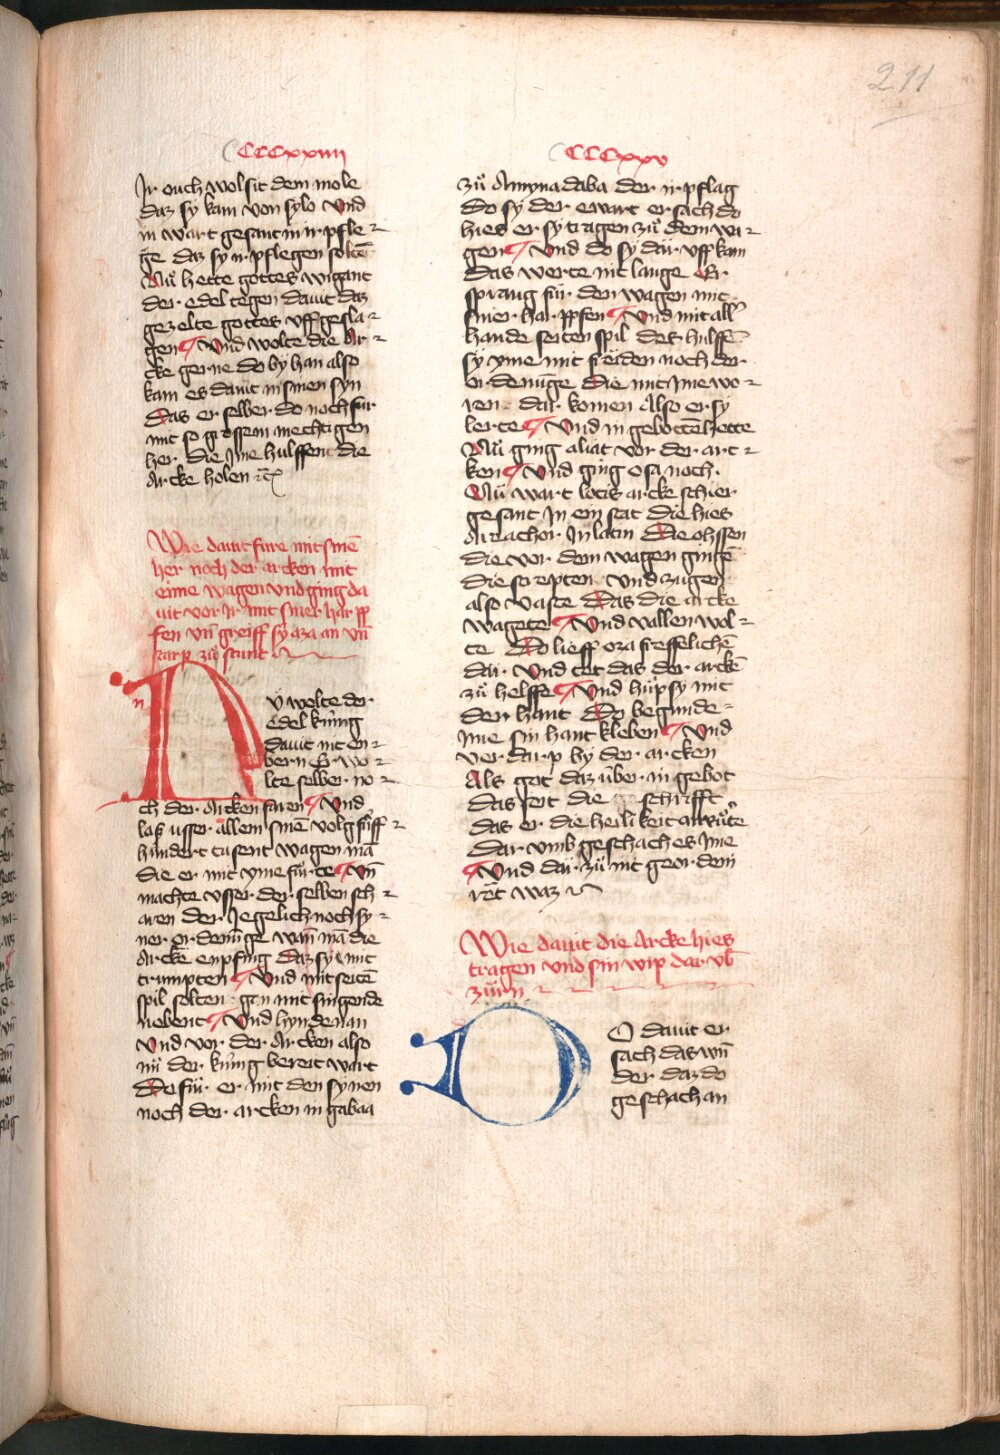 211
CCCxxiiii
Jr ouch wol sit dem mole
daz sy kam von sylo Vnd
in wart gesant in ir pfle⸗
ge daz sy ir pflegen soltē
Nů hette gottes wigant
der edel tegen dauit daz
gezelte gottes vff gesla⸗
gen ¶ Vnd wolte die Ar⸗
cke gerne do by han also
kam es dauit in sinen syn
Das er selber do noch für
mit so grossem mechtigen
her die Jme hulffent die
Arcke holen
Wie dauit fure mit sinē
her noch der arcken mit
eime wagen vnd ging da
uit vor Jr mit siner harpf
fen vn̄ greiff sy aza an vn̄
starp zů stunt
n
ů wolte der
edel kúnig
dauit nit en⸗
bern Er wo⸗
lte selber no⸗
ch der Arcken faren ¶ Vnd
las usser allem sinē volg fúff⸗
hundert tusent wagen mā
die er mit yme fůrte ¶ Vn̄
machte vsser der selben sch⸗
aren der Jegelich noch sy⸗
ner ordenūge wan̄ mā die
Arcke enpfing Daz sy mit
trumpten ¶ Vnd mit seitē
spil solten gen mit singende
nebent ¶ Vnd hynden an
Vnd vor der Arcken also
nů der kúnig bereit wart
Do fůr er mit den synen
noch der arcken in gabaa
CCCxxv
zů Amynadaba der ir pflag
Do sy der ewart ersach do
hies er sy tragen zů dem wa⸗
gen ¶ Vnd do sy dar vff kam
das werte nit lange Er
sprang fúr den wagen mit
siner harpffen ¶ Vnd mit all'
hande seiten spil Des hulffē
sy yme mit freiden noch der
ordenūge die mit Jme wo⸗
ren dar komen Also er sy
lerte ¶ Vnd in gebottē hette
Nů ging aliat vor der arc⸗
ken ¶ Vnd ging osa noch.
Nů wart locis arcke schier
gesant Jn ein stat die hies
Aireachor Jn latin Die ohssen
die vor dem wagen gingē
die screpten Vnd zugen
also vaste Das die arcke
wagete ¶ Vnd vallen wol⸗
te Do lieff oza freffelichē
dar Vnd tet das der arckē
zů helffe ¶ Vnd hůp sy mit
den hant Do begunde⸗
Jme sin hant kleben ¶ Vnd
verdarp by der arcken
Als got daz úber in gebot
Das seit die schrifft
das er die heilikeit anrůte
Dar vmb geschach es Jme
¶ Vnd dar zů nit geordem
rēt waz
Wie dauit die Arcke hies
tragen vnd sin wip dar vb̄
zúrn
O dauit er
sach das wū
der daz do
geschach an